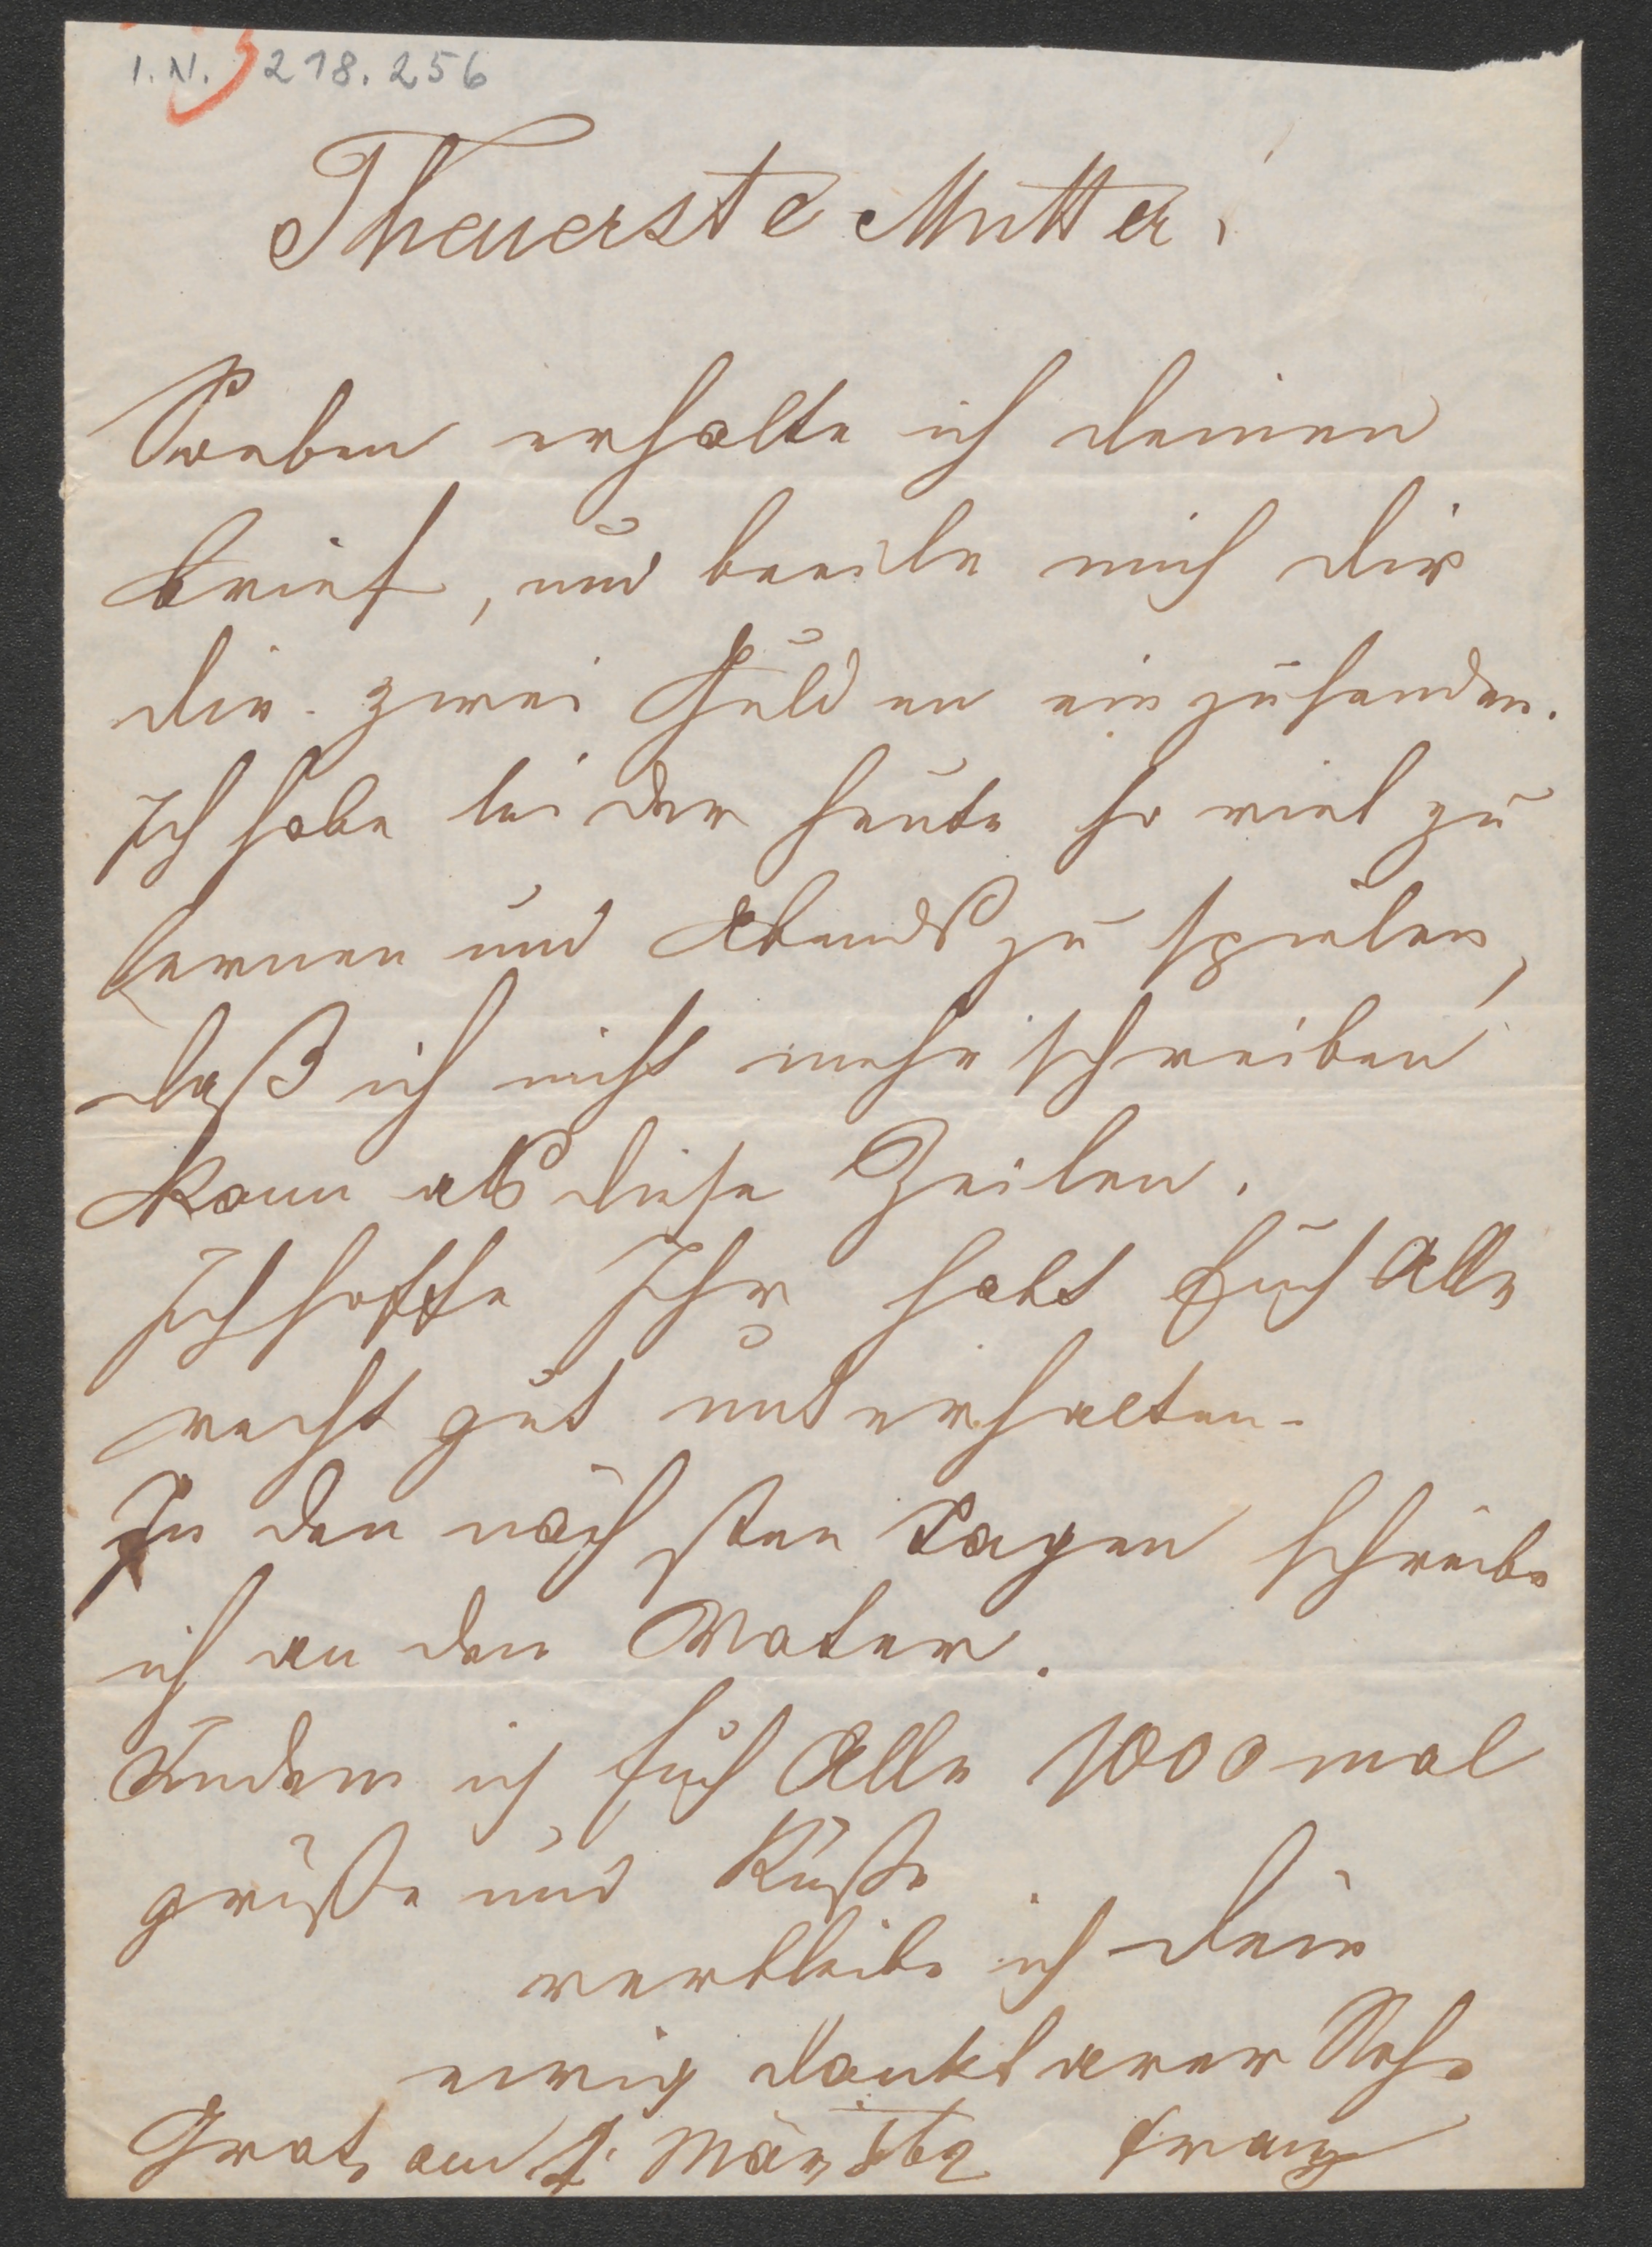 I.N. 218.256
Theuerste Mutter!
Soeben erhalte ich deinen
Brief, und beeile mich dir
die zwei Gulden einzusenden.
Ich habe leider heute so viel zu
lernen und Abends zu spielen,
daß ich nicht mehr schreiben
kann als diese Zeilen.
Ich hoffe Ihr habt Euch Alle
recht gut unterhalten.
In den nächsten Tagen schreibe
ich an den Vater.
Indem ich Euch Alle 1000mal
grüße und Küße
verbleibe ich dein
ewig dankbarer Sohn
Gratz am 1. März Franz